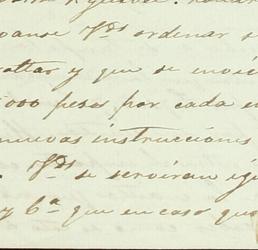 Vds ordenar s
y que se envi
000 pesos por cada e
nuevas instrucciones
. Vds se serviran ig
y Ca que en caso que